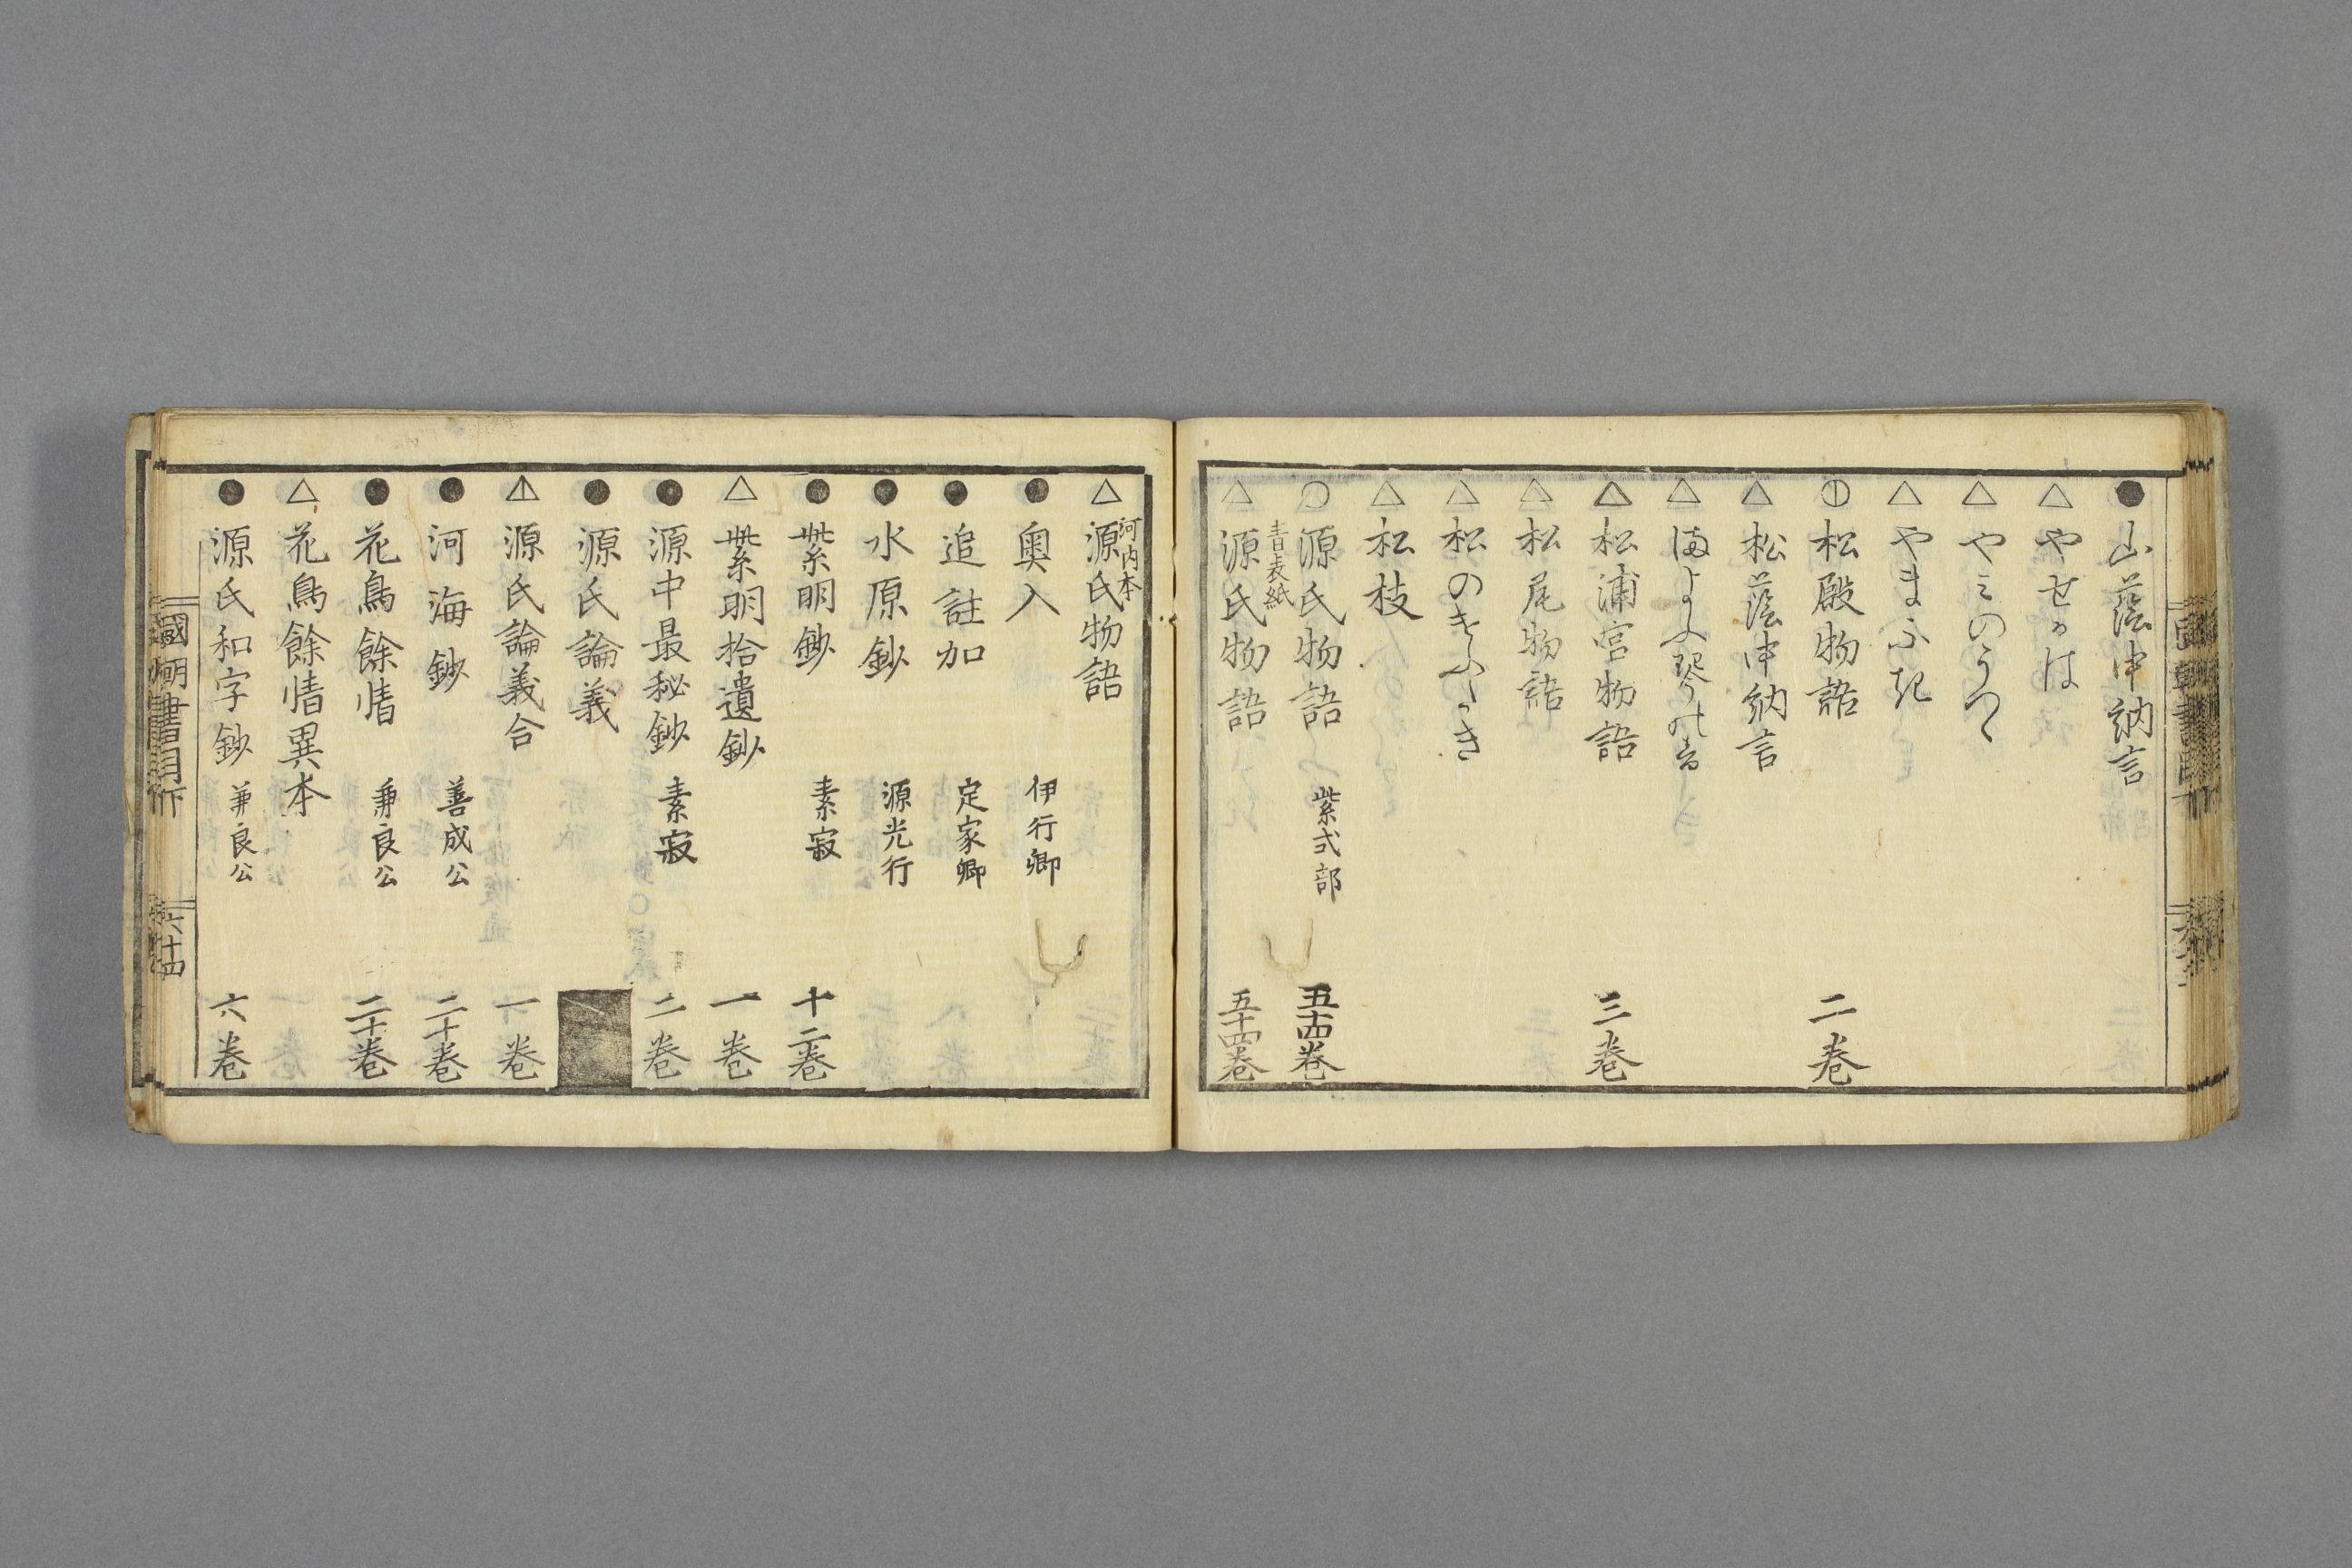 ●山蔭中納言
△やせかは
△やみのうつゝ
△やまふき
⦶松殿物語 二巻
△松蔭中納言
△松浦宮物語 三巻
△松尾物語
△松枝
○源氏物語 紫式部 五十四巻
△源氏物語 青表紙 五十四巻
△源氏物語 河内本
●奥入 伊行卿
●追註加 定家卿
●水原鈔 源光行
●紫明鈔 素寂 十二巻
△紫明拾遺鈔 一巻
●源中最秘鈔 素寂 二巻
●源氏論義
◮源氏論義合 一巻
●河海鈔 善成公 二十巻
●花鳥餘情 兼良公 二十巻
△花鳥餘情異本
●源氏和字鈔 兼良公 六巻
國朝書目下 六十四